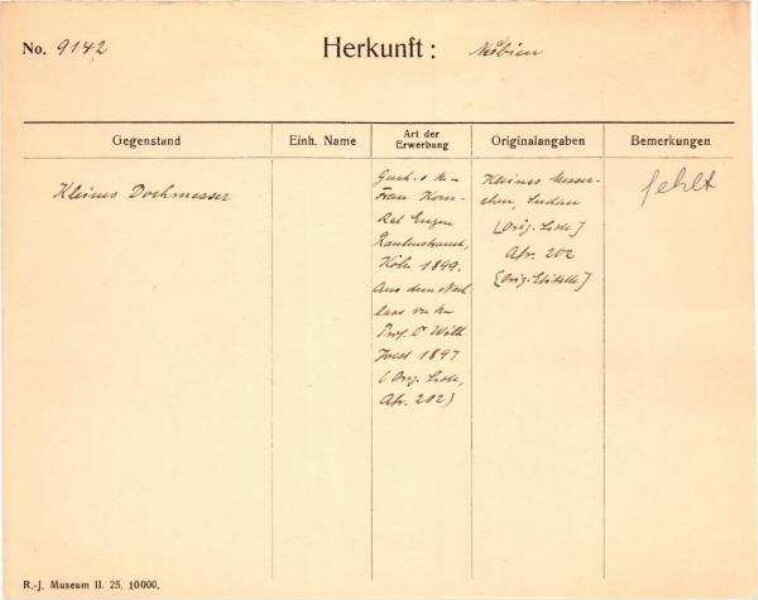 No. 9142 Herkunft: Nubien
Gegenstand Einh. Name Art der Erwerbung Originalangaben Bemerkungen
Kleines Dochmesser
Gesch. v.
Frau Kom-
Rat Eugen
Rautenstrauch,
Köln 1899.
Aus dem Nach
lass von
Prof. Dr Wilh.
Joest 1897
(Orig. Liste,
Afr. 202)
Kleines Messer-
chen, Sudan
[Orig. Liste]
Afr. 202
[Orig. Etikette]
fehlt
R.-J. Museum II. 25. 10000.